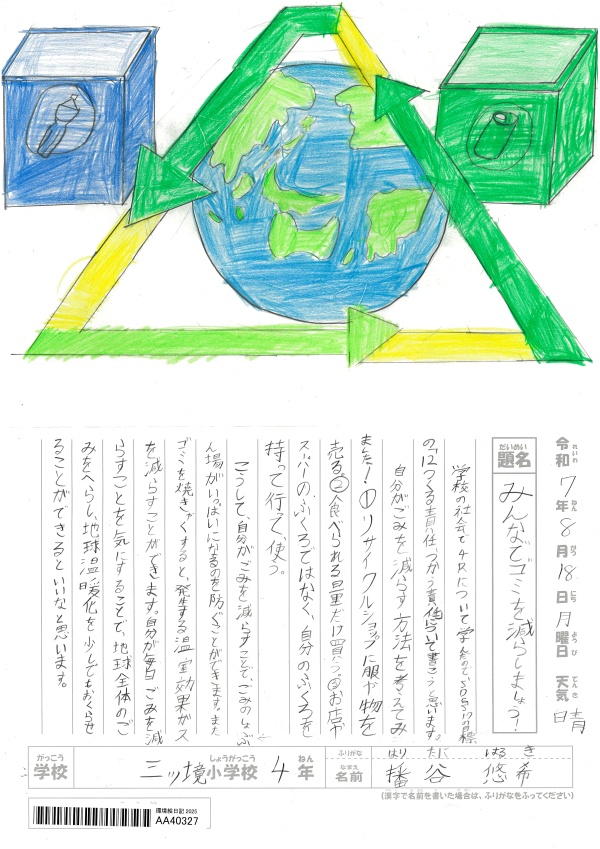 令和7年8月18日月曜日 天気 晴
れいわ ねん がつ にち ようび てんき
だいめい
題名 みんなでゴミを減らしましょう!
学校の社会で4Rについて学んだので、SDGsの目標
の「12つくる責任、つかう責任」について書こうと思います。
自分がごみを減らす方法を考えてみ
ました!①リサイクルショップに服や物を
売る。②食べられる量だけ買う。③お店や
スーパーのふくろではなく、自分のふくろを
持って行って、使う。
こうして、自分がごみを減らすことで、ごみのしょぶ
ん場がいっぱいになるのを防ぐことができます。また
ゴミを焼きゃくすると、発生する温室効果ガス
を減らすことができます。自分が毎日ごみを減
らすことを気にすることで、地球全体のご
みをへらし、地球温暖化を少しでもおくらせ
ることができるといいなと思います。
がっこう しょうがっこう ねん ふりがな はり たに はる き
学校 三ツ境小学校 4年 なまえ 名前 播谷 悠希
(漢字で名前を書いた場合は、ふりがなをふってください)
環境絵日記 2025
AA40327